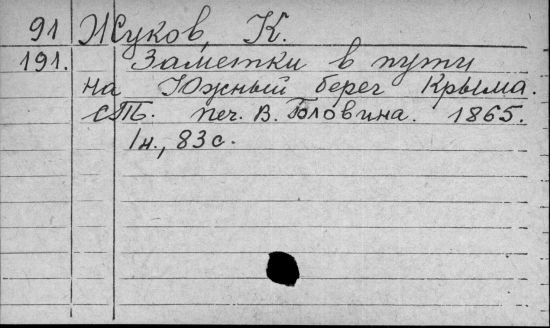 91 Жуков, К.
191. Заметки в пути
на Южный берег Крыма.
СПБ. печ. В. Головина. 1865.
1н., 83с.